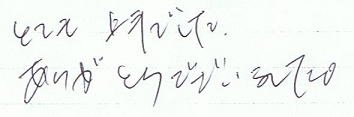 とても 上手でした.
ありがとうございました。